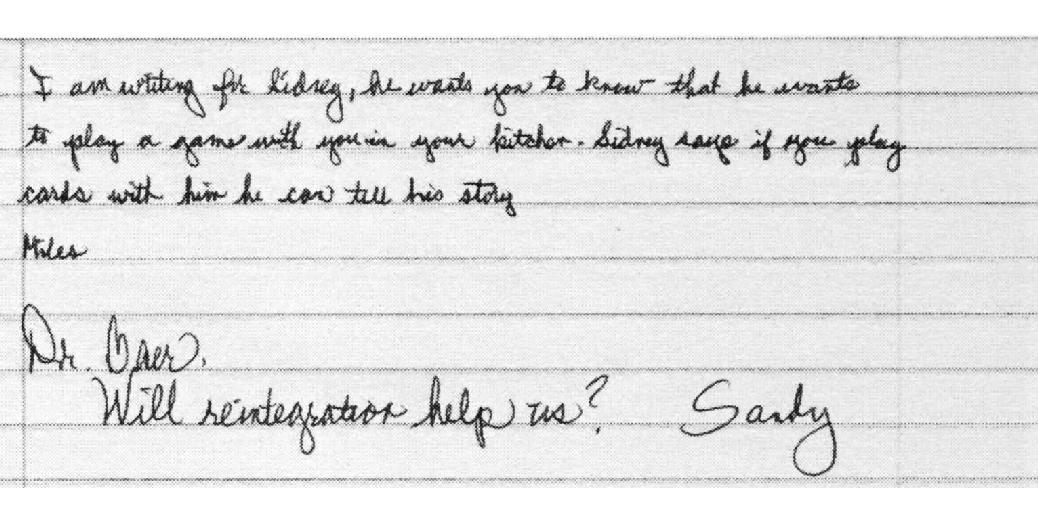 I am writing for Sidney, he wants you to know that he wants
to play a game with you in your kitchen. Sidney says if you play
cards with him he can tell his story
Miles
Dr. Baer,
Will reintegration help us? Sandy